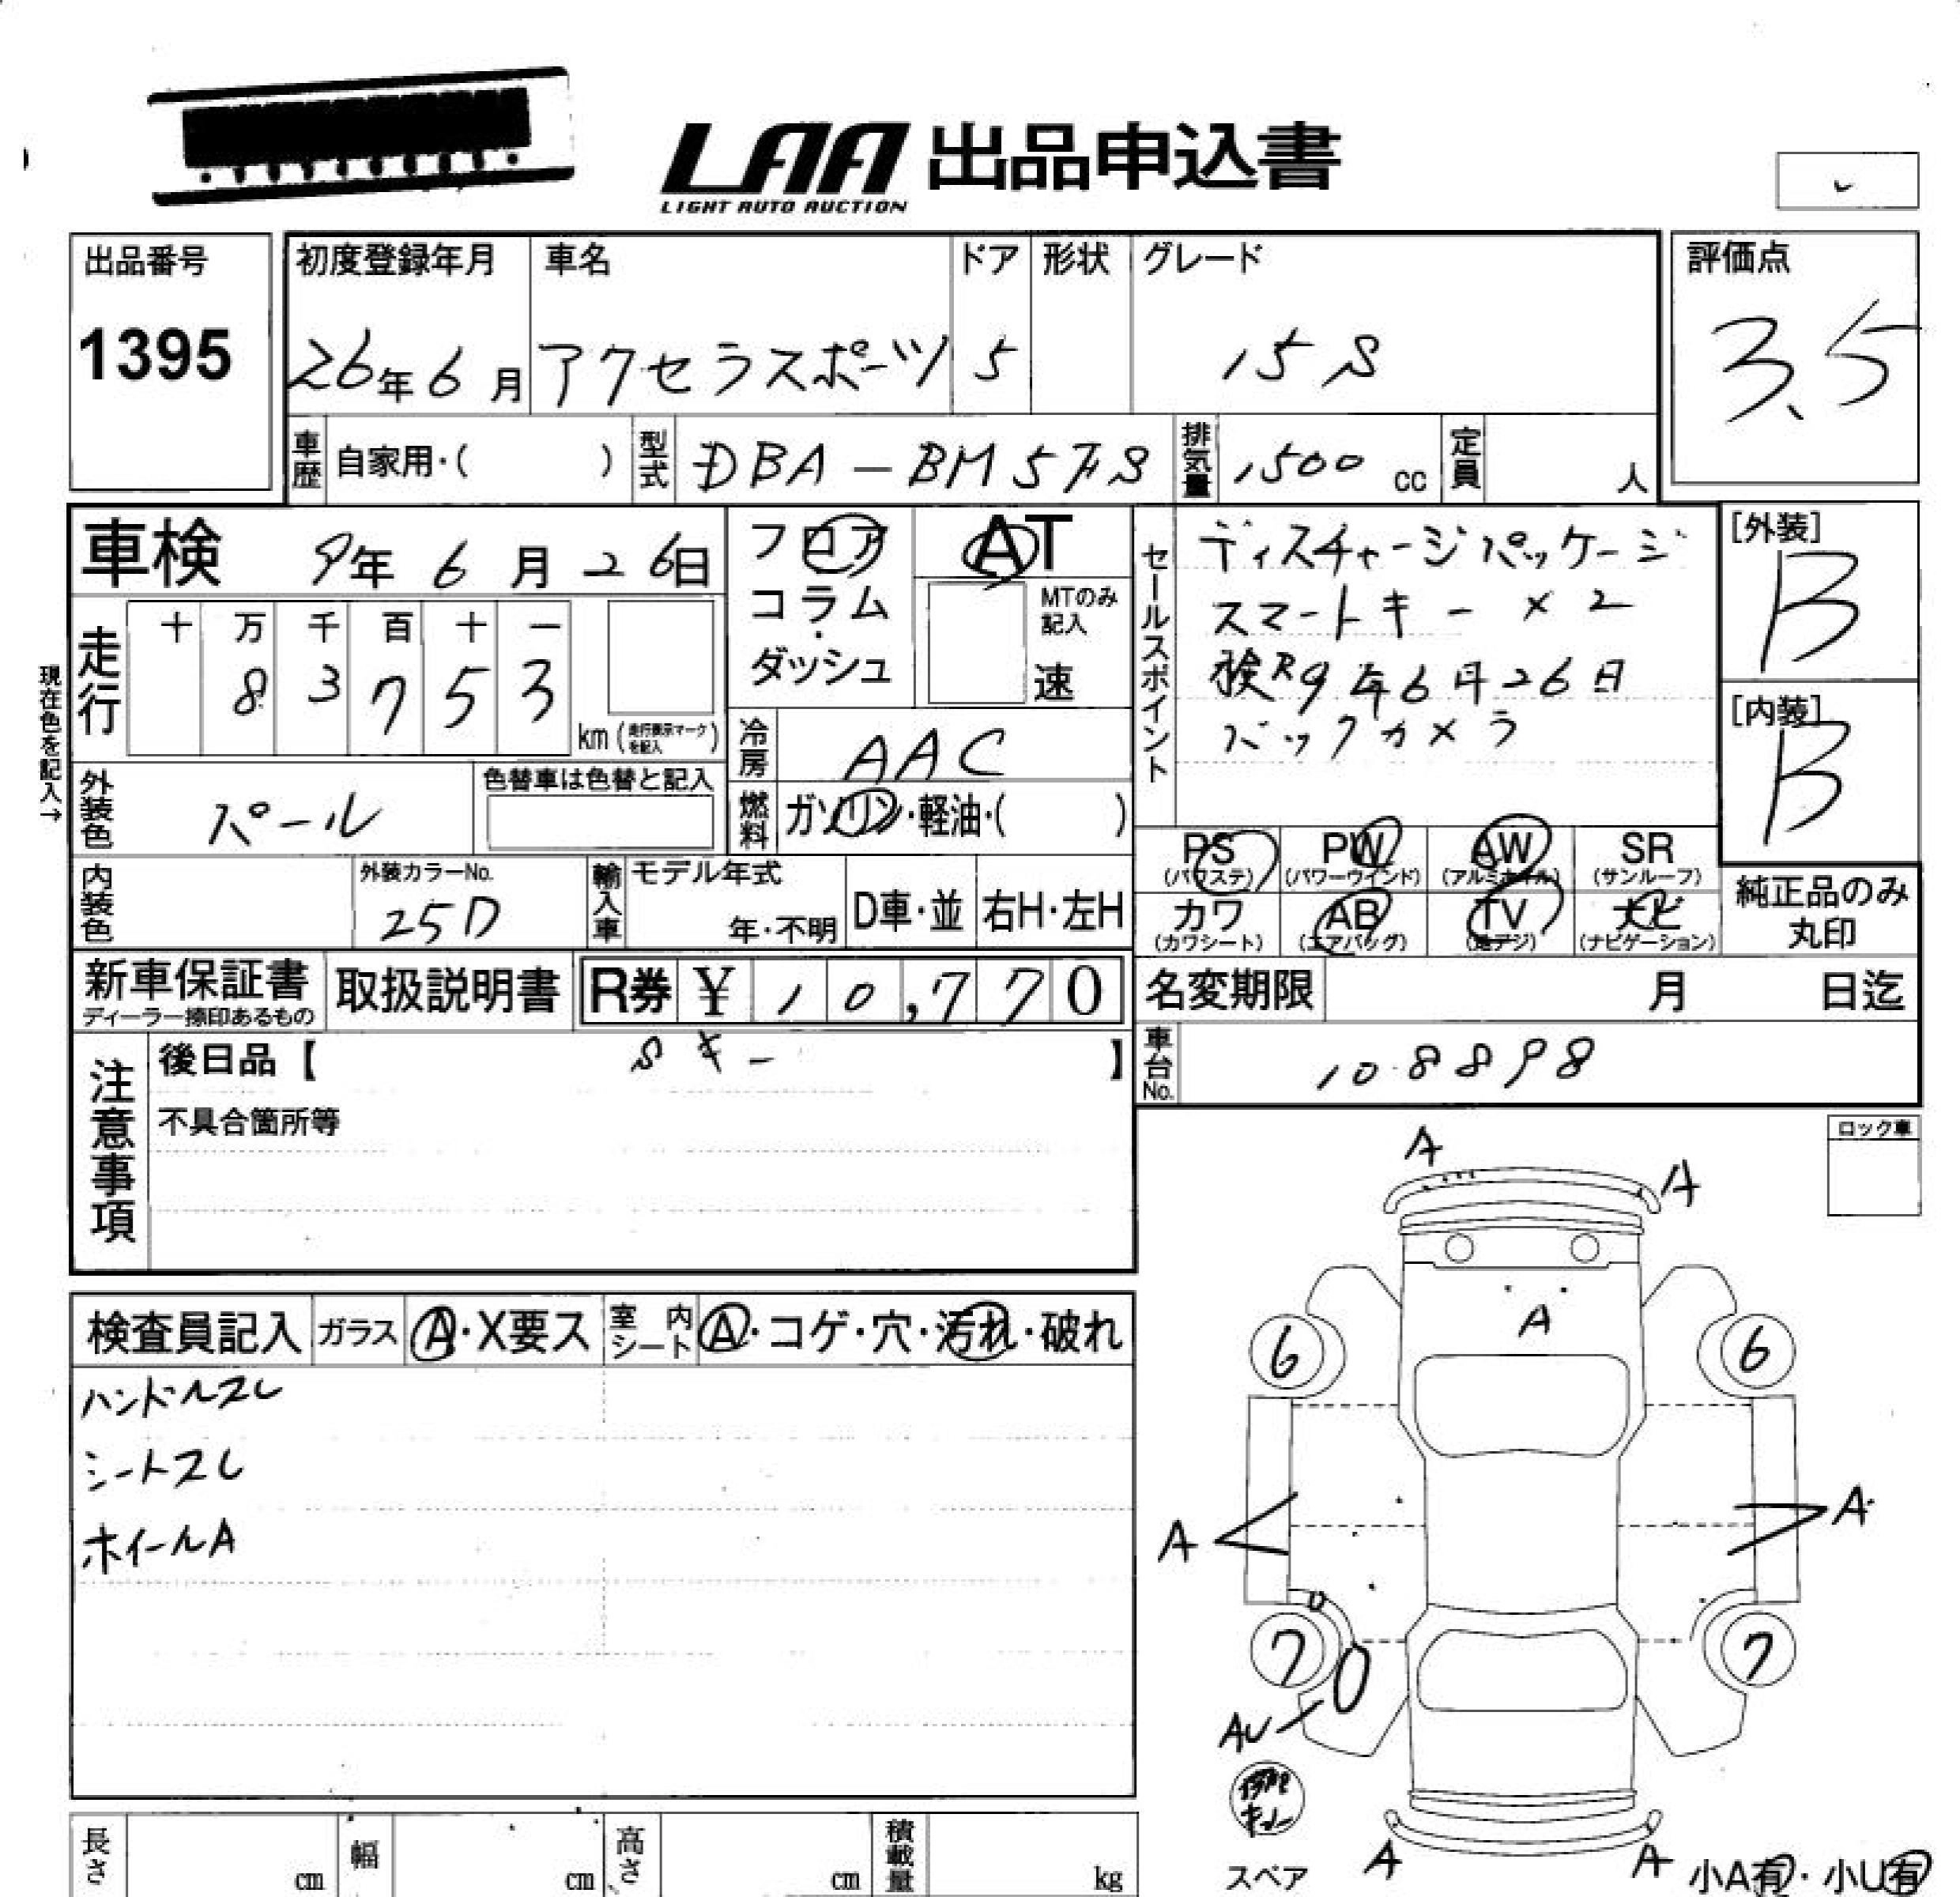 LAA 出品申込書
LIGHT AUTO AUCTION
出品番号
1395
初度登録年月 車名 ドア 形状 グレード
26年6月 アクセラスポーツ 5 15S
評価点
3.5
車歴 自家用・( ) 型式 DBA-BM5FS 排気量 1500 cc 定員 人
車検 9年6月26日
フロア
コラム・
ダッシュ
AT
MTのみ
記入
速
走行 十 万 千 百 十 一
8 3 7 5 3
km (走行表示マークを記入)
現在色を記入→
冷房 AAC
燃料 ガソリン・軽油・( )
セールスポイント
ディスチャージパッケージ
スマートキー×2
検R9年6月26日
バックカメラ
[外装]
B
[内装]
B
外装色 パール
色替車は色替と記入
PS (パワステ) PW (パワーウインド) AW (アルミホイル) SR (サンルーフ)
カワ (カワシート) AB (エアバッグ) TV (地デジ) ナビ (ナビゲーション)
純正品のみ
丸印
内装色 外装カラーNo. 25D
輸入車 モデル年式 年・不明 D車・並 右H・左H
新車保証書
ディーラー捺印あるもの
取扱説明書 R券 ¥ 10,770
名変期限 月 日迄
車台No. 108898
注意事項
後日品【 Sキー 】
不具合箇所等
ロック車
検査員記入 ガラス A・X要ス 室内シート A・コゲ・穴・汚れ・破れ
ハンドルスレ
シートスレ
ホイールA
A
A
A
6 6
A A
U
7 7
AU
スペア
A A
小A有・小U有
長さ cm 幅 cm 高さ cm 積載量 kg